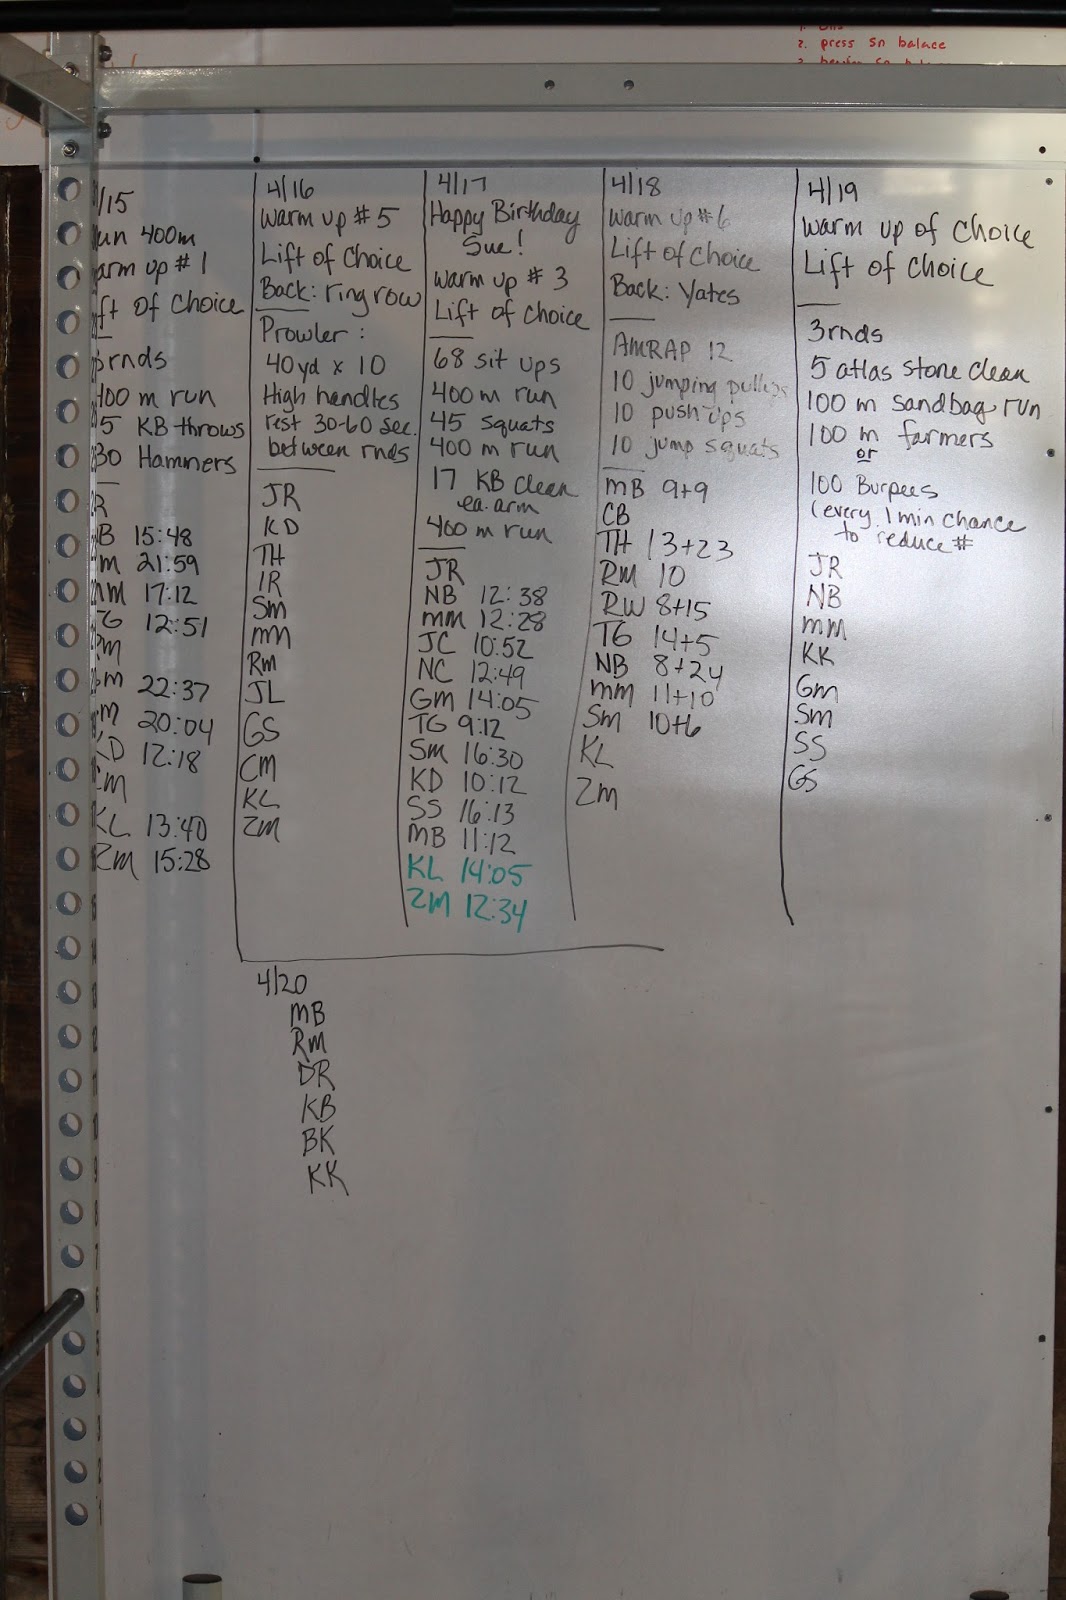 2. press Sn balace
/15
un 400m
arm up # 1
ft of Choice
3rnds
400 m run
5 KB throws
30 Hammers
R
B 15:48
m 21:59
m 17:12
TG 12:51
m
m 22:37
m 20:04
KD 12:18
m
KL 13:40
Zm 15:28
4/16
Warm up # 5
Lift of Choice
Back: ring row
Prowler:
40yd x 10
High handles
rest 30-60 sec.
between rnds
JR
KD
TH
IR
Sm
mm
Rm
JL
GS
Cm
KL
Zm
4/17
Happy Birthday
Sue!
Warm up # 3
Lift of Choice
68 sit ups
400 m run
45 squats
400 m run
17 KB clean
ea. arm
400 m run
JR
NB 12:38
mm 12:28
JC 10:52
NC 12:49
Gm 14:05
TG 9:12
Sm 16:30
KD 10:12
SS 16:13
MB 11:12
KL 14:05
Zm 12:34
4/18
Warm up #6
Lift of Choice
Back: Yates
AMRAP 12
10 jumping pullups
10 push-ups
10 jump squats
MB 9+9
CB
TH 13+23
Rm 10
RW 8+15
TG 14+5
NB 8+24
mm 11+10
Sm 10+6
KL
Zm
4/19
Warm up of Choice
Lift of Choice
3rnds
5 atlas stone clean
100 m sandbag run
100 m farmers
or
100 Burpees
(every 1 min chance
to reduce #
JR
NB
mm
KK
Gm
Sm
SS
GS
4/20
MB
Rm
DR
KB
BK
KK